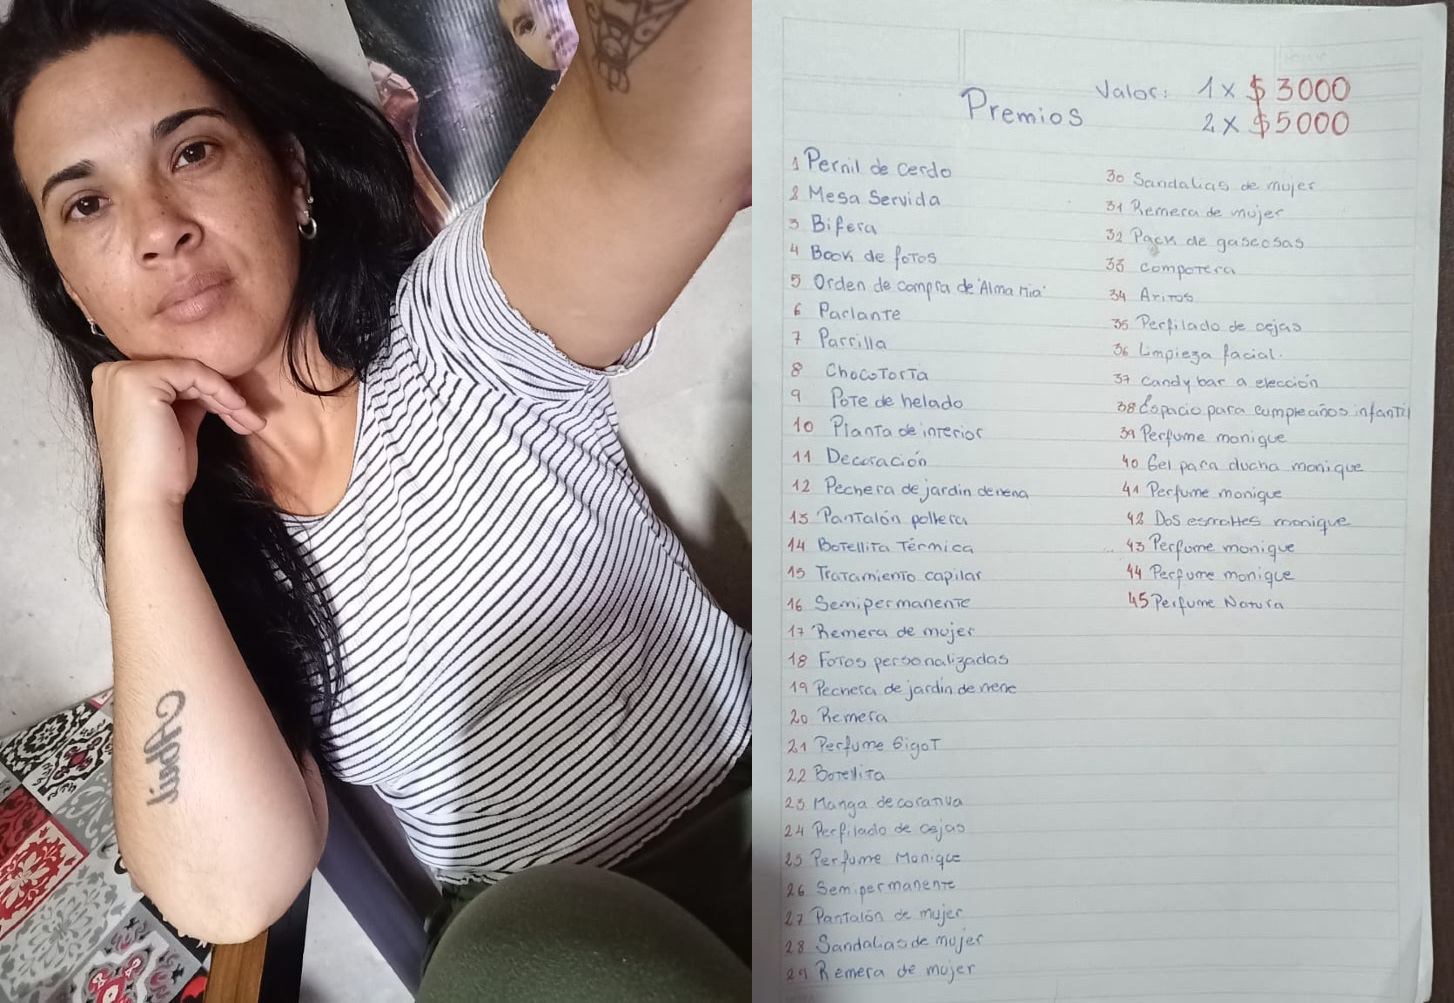 Abril
Premios
Valor: 1 x $ 3000
2 x $ 5000
1 Pernil de cerdo
2 Mesa Servida
3 Bifera
4 Book de fotos
5 Orden de compra de "Alma Mia"
6 Parlante
7 Parrilla
8 ChocoTorTa
9 Pote de helado
10 Planta de interior
11 Decoración
12 Pechera de jardin de nena
13 Pantalón pollera
14 Botellita Térmica
15 Tratamiento capilar
16 Semipermanente
17 Remera de mujer
18 Fotos personalizadas
19 Pechera de jardin de nene
20 Remera
21 Perfume Gigot
22 Botellita
23 Manga decorativa
24 Perfilado de cejas
25 Perfume Monique
26 Semipermanente
27 Pantalón de mujer
28 Sandalias de mujer
29 Remera de mujer
30 Sandalias de mujer
31 Remera de mujer
32 Pack de gaseosas
33 Compotera
34 Aritos
35 Perfilado de cejas
36 Limpieza facial.
37 Candy bar a elección
38 Espacio para cumpleaños infantil
39 Perfume monique
40 Gel para ducha monique
41 Perfume monique
42 Dos esmaltes monique
43 Perfume monique
44 Perfume monique
45 Perfume Natura